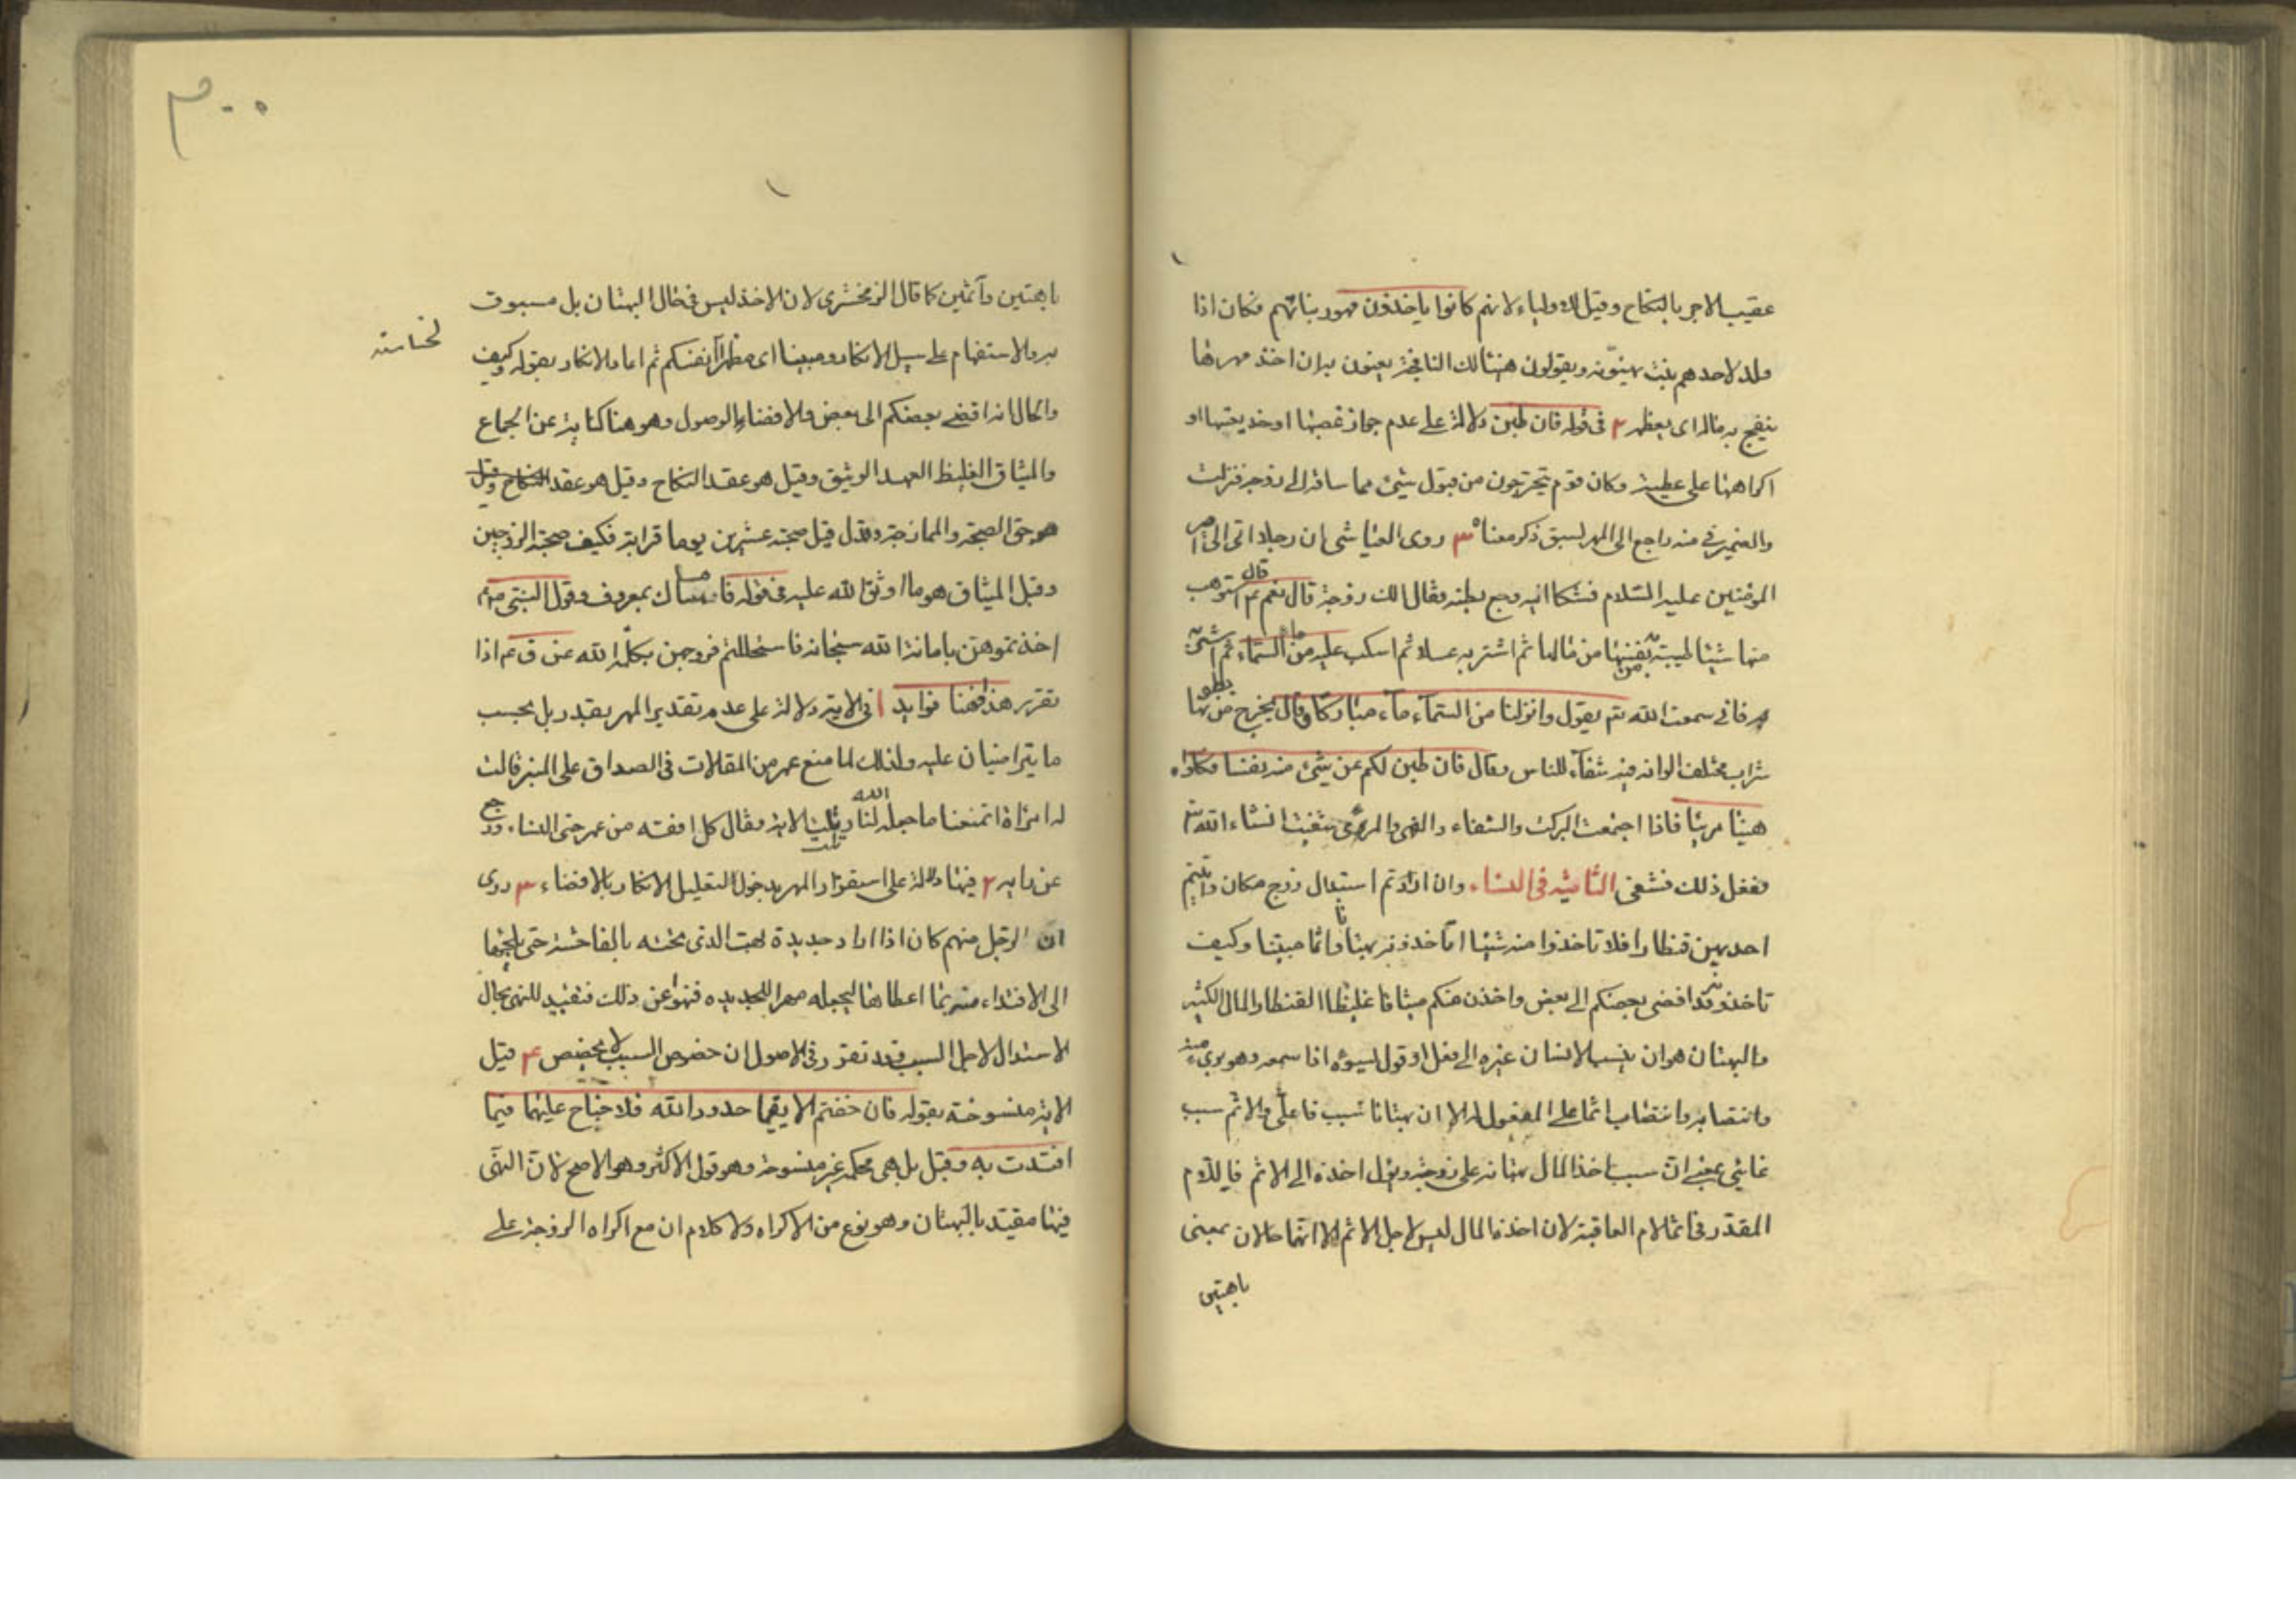 عقيب الامر بالنكاح وقيل للاولياء لانهم كانوا ياخذون مهور بناتهم فكان اذا
ولد لاحدهم بنت يهنونه ويقولون هنيئا لك النافجة يعنون به ان اخذ مهرها
ينفج به ماله اى يعظمه ٢ فى قوله فان طبن دلالة على عدم جواز غصبها او خديعتها او
اكراهها على عطيته وكان قوم يتحرجون من قبول شيئ مما ساقه الى زوجه فنزلت
والضمير فى منه راجع الى المهر لسبق ذكر معناه ٣ روى العياشى ان رجلا اتى الى امير
المؤمنين عليه السلام فشكا اليه وجع بطنه فقال الك زوجة قال نعم قال استوهب
منها شيئا طيبة به نفسها من مالها ثم اشتر به عسلا ثم اسكب عليه من ماء السماء ثم اشر
به فانى سمعت الله تع يقول وانزلنا من السماء ماء مباركا وقال يخرج من بطونها
شراب مختلف الوانه فيه شفاء للناس وقال فان طبن لكم عن شيئ منه نفسا فكلوه
هنيئا مريئا فاذا اجتمعت البركة والشفاء والهنى والمرئ شفيت انشاء الله تع
ففعل ذلك فشفى الثامنة فى النساء وان اردتم استبدال زوج مكان واتيتم
احديهن قنطارا فلا تاخذوا منه شيئا اتاخذونه بهتانا واثما مبينا وكيف
تاخذونه وقد افضى بعضكم الى بعض واخذن منكم ميثاقا غليظا القنطار المال الكثير
والبهتان هو ان ينسب الانسان غيره الى فعل او قول ليسوءه اذا سمعه وهو برىء منه
وانتصابه وانتصاب اثما على المفعول له الا ان بهتانا سبب فاعلى والاثم سبب
غائى بمعنى ان سبب اخذ المال بهتانه على زوجته ويؤل اخذه الى الاثم فاللام
المقدر فى اثما لام العاقبة لان اخذ المال ليس لاجل الاثم الا انهما حالان بمعنى
باهتين
٣٠٠
باهتين وآثمين كما قال الزمخشرى لان الاخذ ليس فى حال البهتان بل مسبوق
به والاستفهام على سبيل الانكار ومبينا اى مظهرا انفسكم ثم اعاد الانكار بقوله وكيف
والحال انه افضى بعضكم الى بعض والافضاء الوصول وهو هنا كناية عن الجماع
والميثاق الغليظ العهد الوثيق وقيل هو عقد النكاح وقيل هو عقد النكاح وقيل
هو حق الصحبة والممازجة وقد قيل صحبة عشرين يوما قرابة فكيف صحبة الزوجين
وقيل الميثاق هو ما اوثق الله عليه فى قوله فامساك بمعروف وقول النبى ص
اخذتموهن بامانة الله سبحانه فاستحللتم فروجهن بكلمة الله عن ق عم اذا
تقرر هذا فهنا فوايد ١ فى الاية دلالة على عدم تقدير المهر بقدر بل بحسب
ما يتراضيان عليه ولذلك لما منع عمر من المغالات فى الصداق على المنبر قالت
له امراة اتمنعنا ما جعله الله لنا وتلت الاية فقال كل افقه من عمر حتى النساء ورجع
عن رايه ٢ فيها دلالة على استقرار المهر بدخول التعليل الانكار بالافضاء ٣ روى
ان الرجل منهم كان اذا اراد جديدة بهت الذى تحته بالفاحشة حتى يلجئها
الى الافتداء منه بما اعطاها ليجعله مهرا للجديده فنهوا عن ذلك فتقييد النهى بحال
الاستبدال لاجل السبب فقد تقرر فى الاصول ان خصوص السبب لا يخصص ٤ قيل
الاية منسوخة بقوله فان خفتم الا يقيما حدود الله فلا جناح عليهما فيما
افتدت به وقيل بل هى محكمة غير منسوخة وهو قول الاكثر وهو الاصح لان النهى
فيها مقيد بالبهتان وهو نوع من الاكراه ولا كلام ان مع اكراه الزوجة على